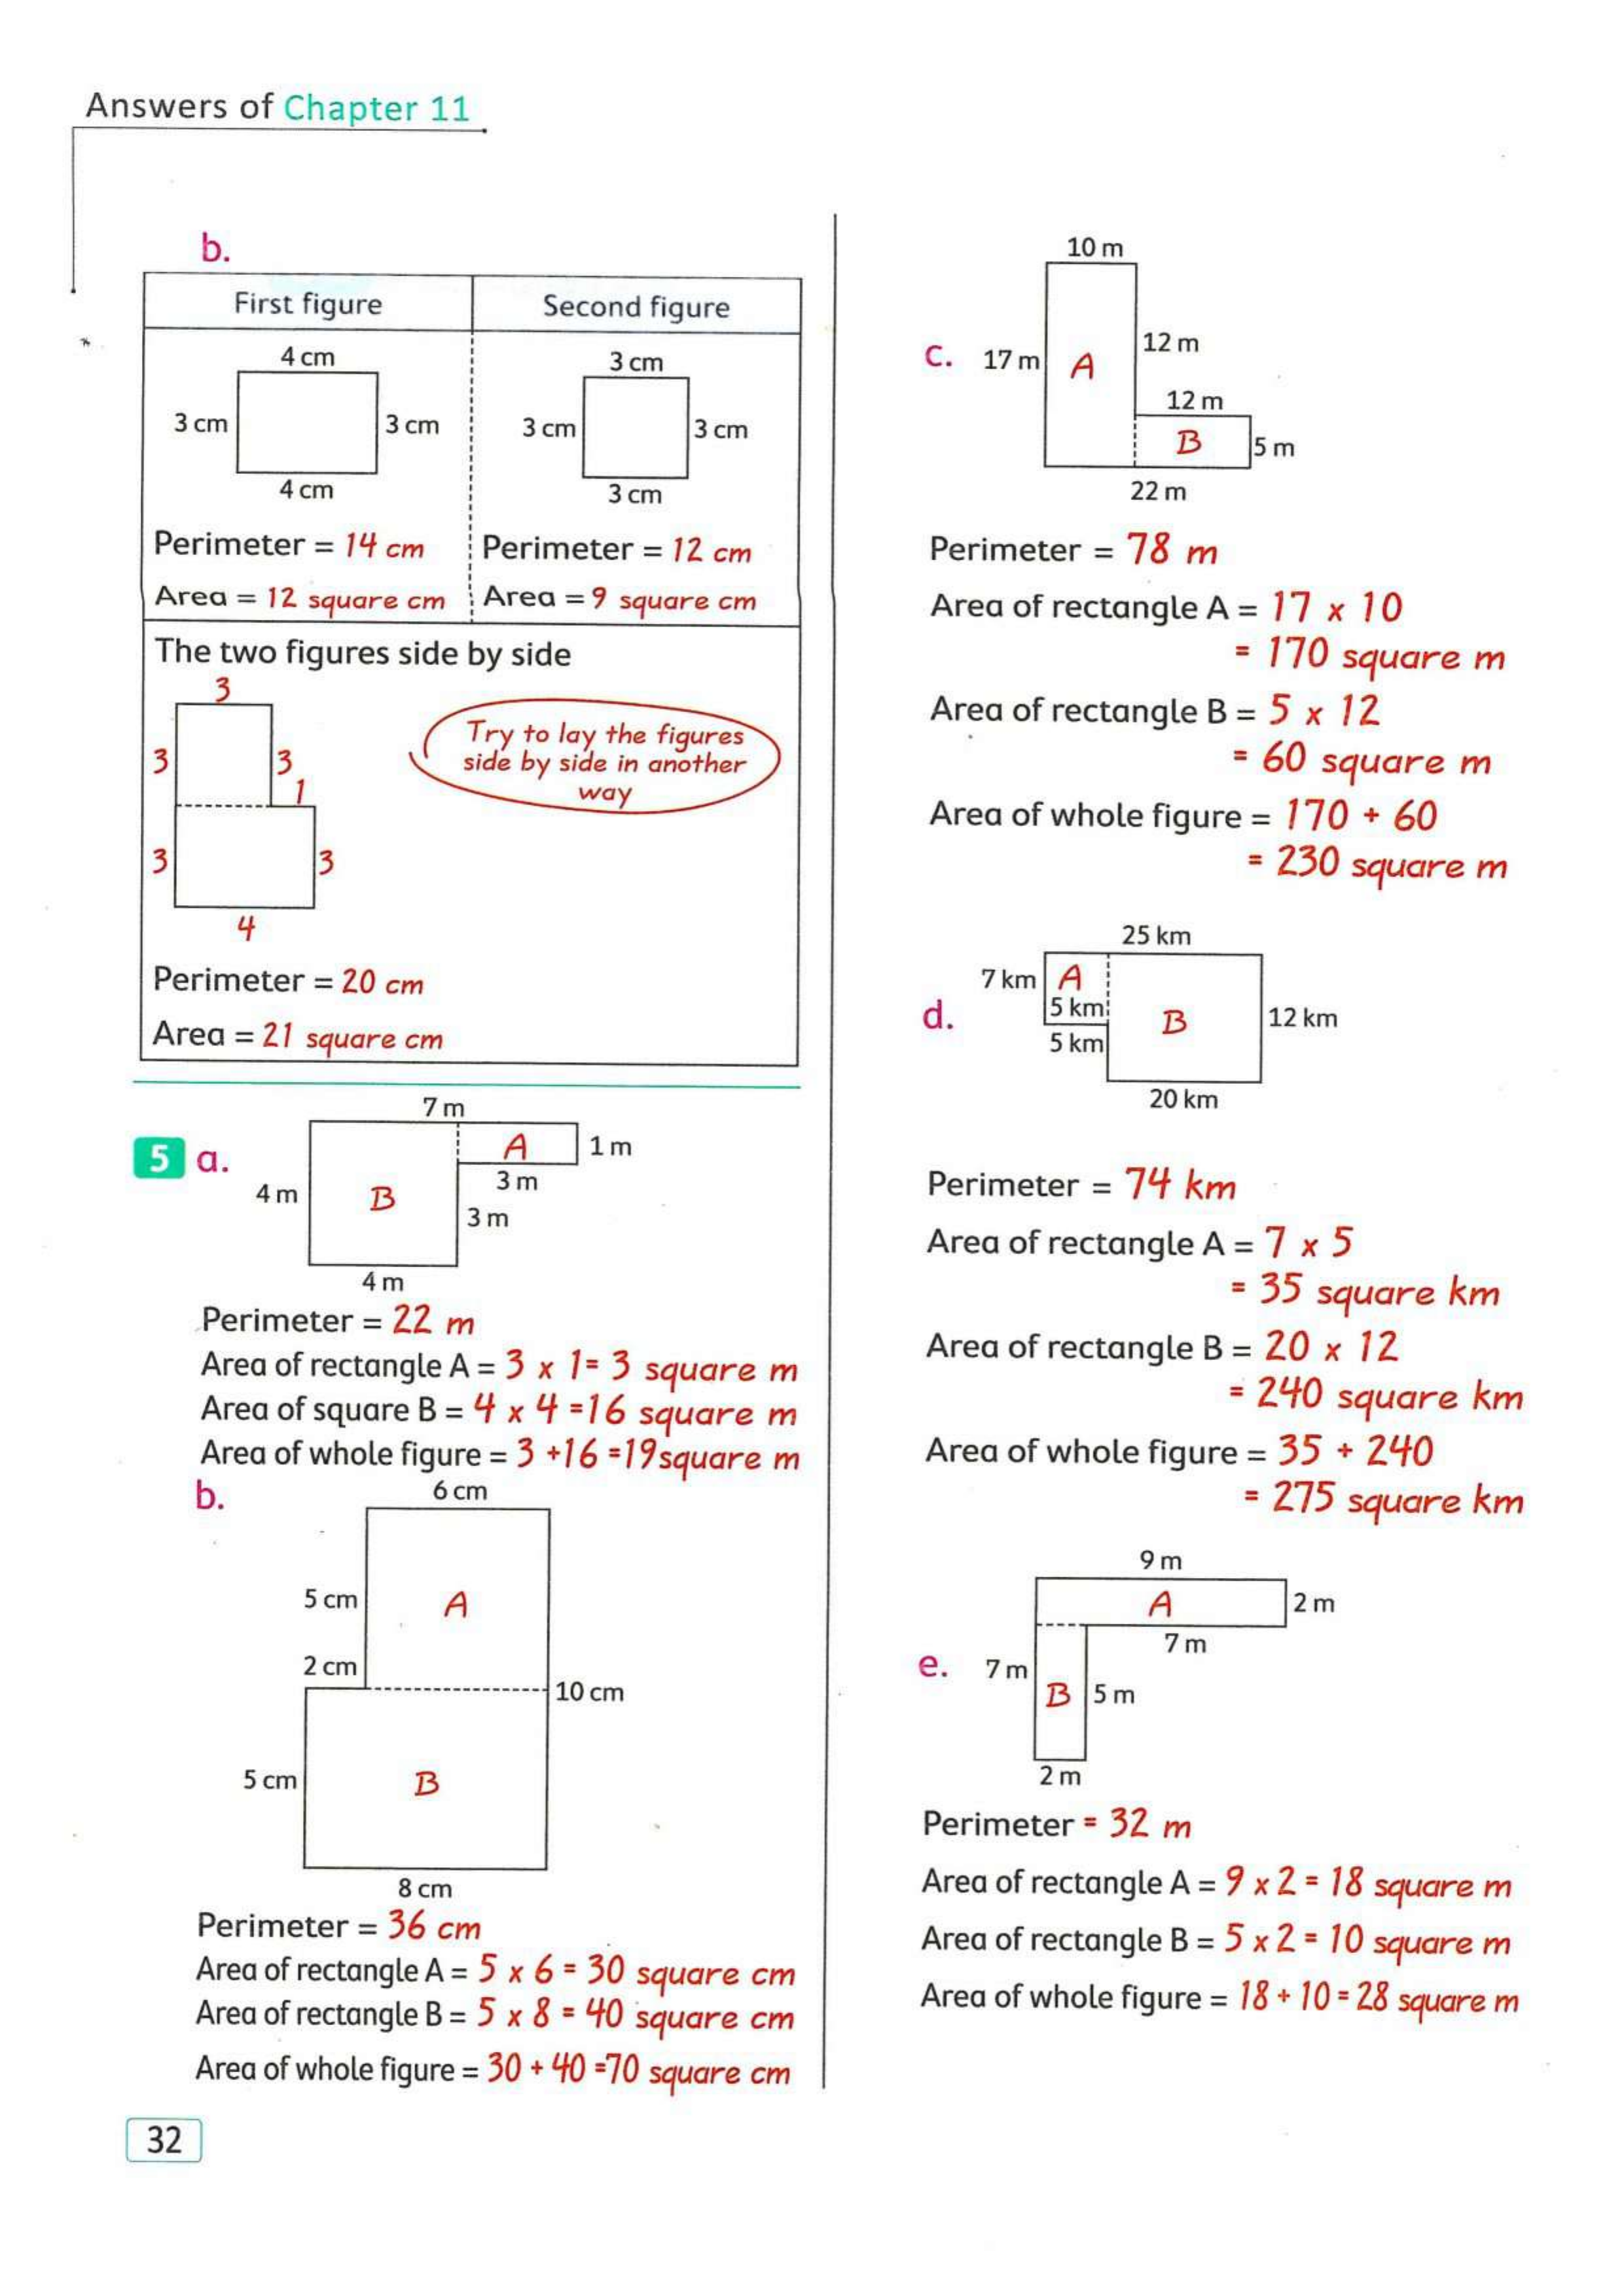 Answers of Chapter 11
b.
First figure
Second figure
4 cm
3 cm
3 cm
4 cm
Perimeter = 14 cm
Area = 12 square cm
3 cm
3 cm
3 cm
3 cm
Perimeter = 12 cm
Area = 9 square cm
The two figures side by side
3
3
3
1
3
3
4
Try to lay the figures
side by side in another
way
Perimeter = 20 cm
Area = 21 square cm
5 a.
7 m
A
1 m
3 m
4 m
B
3 m
4 m
Perimeter = 22 m
Area of rectangle A = 3 x 1= 3 square m
Area of square B = 4 x 4 =16 square m
Area of whole figure = 3 +16 =19 square m
b.
6 cm
5 cm
A
2 cm
10 cm
5 cm
B
8 cm
Perimeter = 36 cm
Area of rectangle A = 5 x 6 = 30 square cm
Area of rectangle B = 5 x 8 = 40 square cm
Area of whole figure = 30 + 40 =70 square cm
32
c.
10 m
17 m
A
12 m
12 m
B
5 m
22 m
Perimeter = 78 m
Area of rectangle A = 17 x 10
= 170 square m
Area of rectangle B = 5 x 12
= 60 square m
Area of whole figure = 170 + 60
= 230 square m
d.
25 km
7 km
A
5 km
5 km
B
12 km
20 km
Perimeter = 74 km
Area of rectangle A = 7 x 5
= 35 square km
Area of rectangle B = 20 x 12
= 240 square km
Area of whole figure = 35 + 240
= 275 square km
e.
9 m
A
2 m
7 m
7 m
B
5 m
2 m
Perimeter = 32 m
Area of rectangle A = 9 x 2 = 18 square m
Area of rectangle B = 5 x 2 = 10 square m
Area of whole figure = 18 + 10 = 28 square m